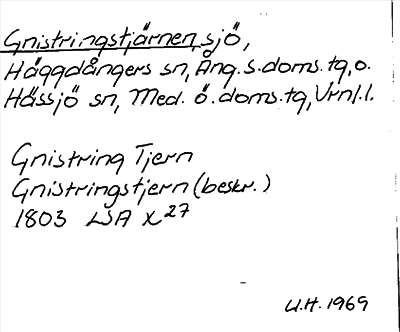 Gnistringstjärnen, sjö,
Häggdångers sn, Ång. s. doms. tg, o.
Hässjö sn, Med. ö. doms. tg, Vrnl. l.
Gnistring Tjern
Gnistringstjern (beskr.)
1803 LSA X27
U.H. 1969